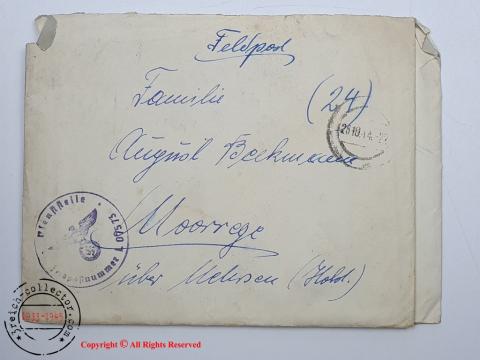 Feldpost
Familie (24)
August Beckmann
Moorrege
über Uetersen (Holst.)
28.10.4
Dienststelle
Feldpostnummer L 00575
3reich-collector.com
1933-1945
Copyright © All Rights Reserved